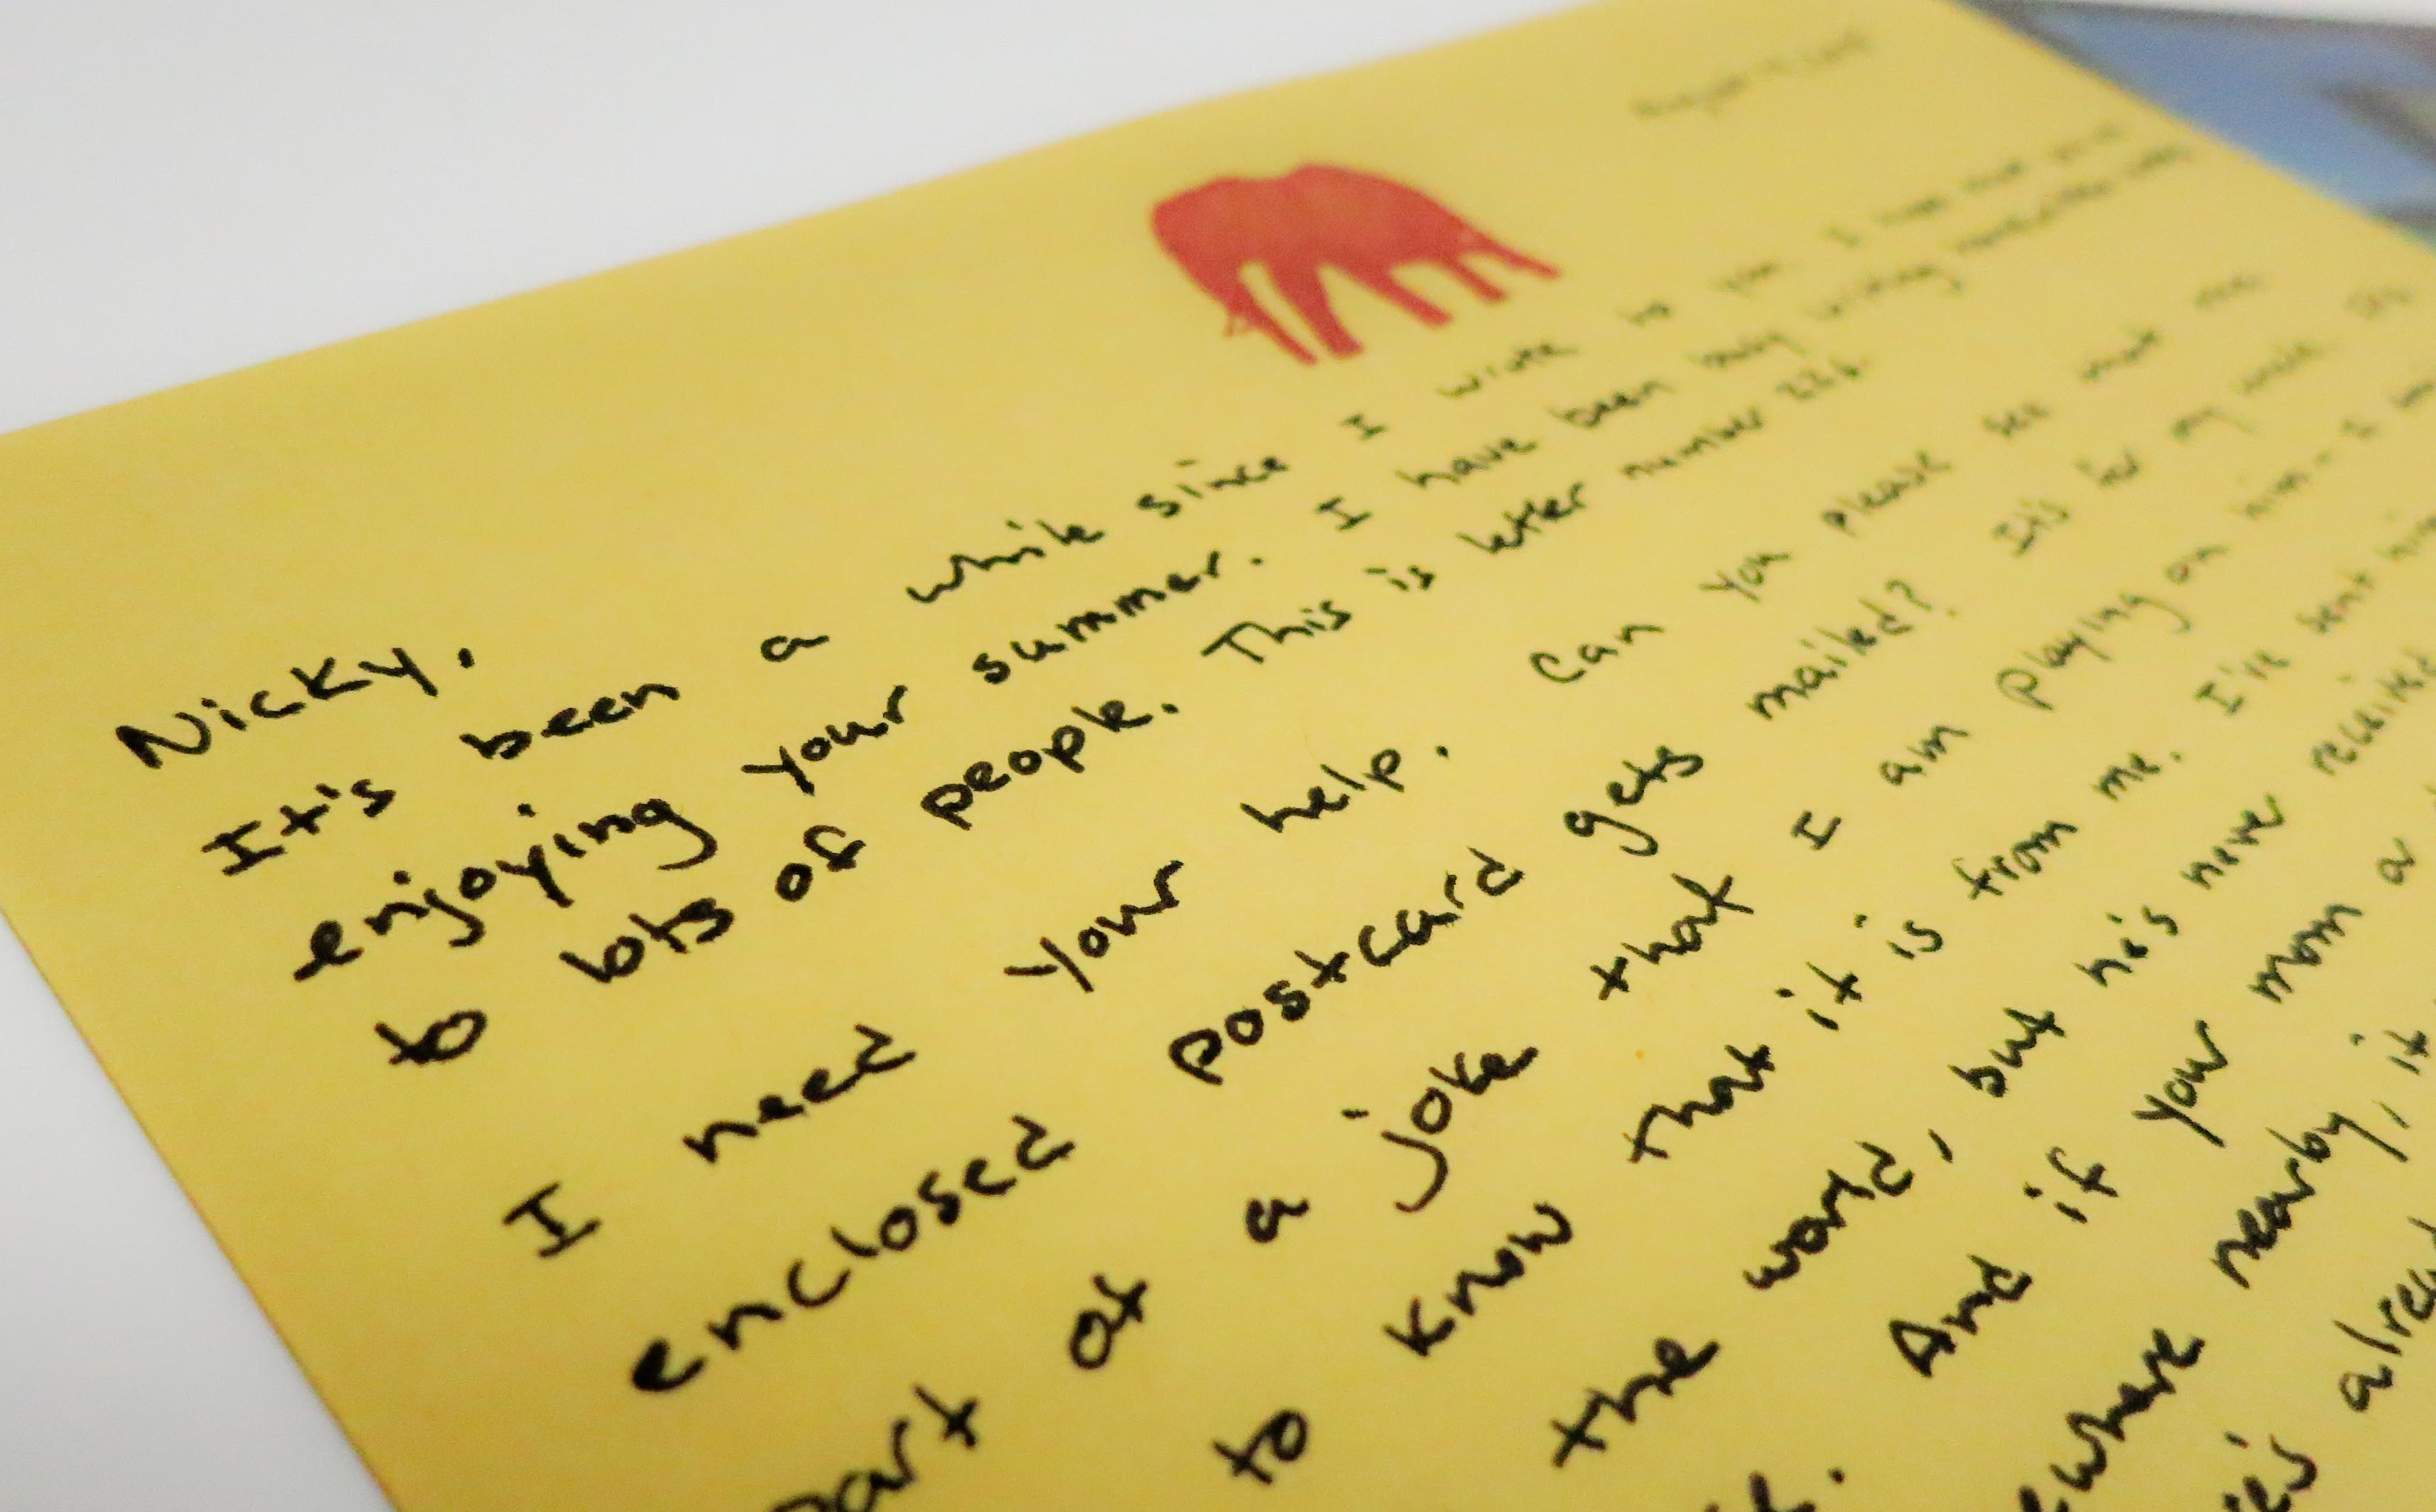 Nicky,
It's been a while since I wrote to you. I hope that you're
enjoying your summer. I have been busy writing
to lots of people. This is letter number 226.
I need your help. Can you please see that the
enclosed postcard gets mailed? It's for my uncle.
part of a joke that I am playing on him - I
to know that it is from me. I've sent him
the world, but he's never received
And if your mom a
where nearby, it
already